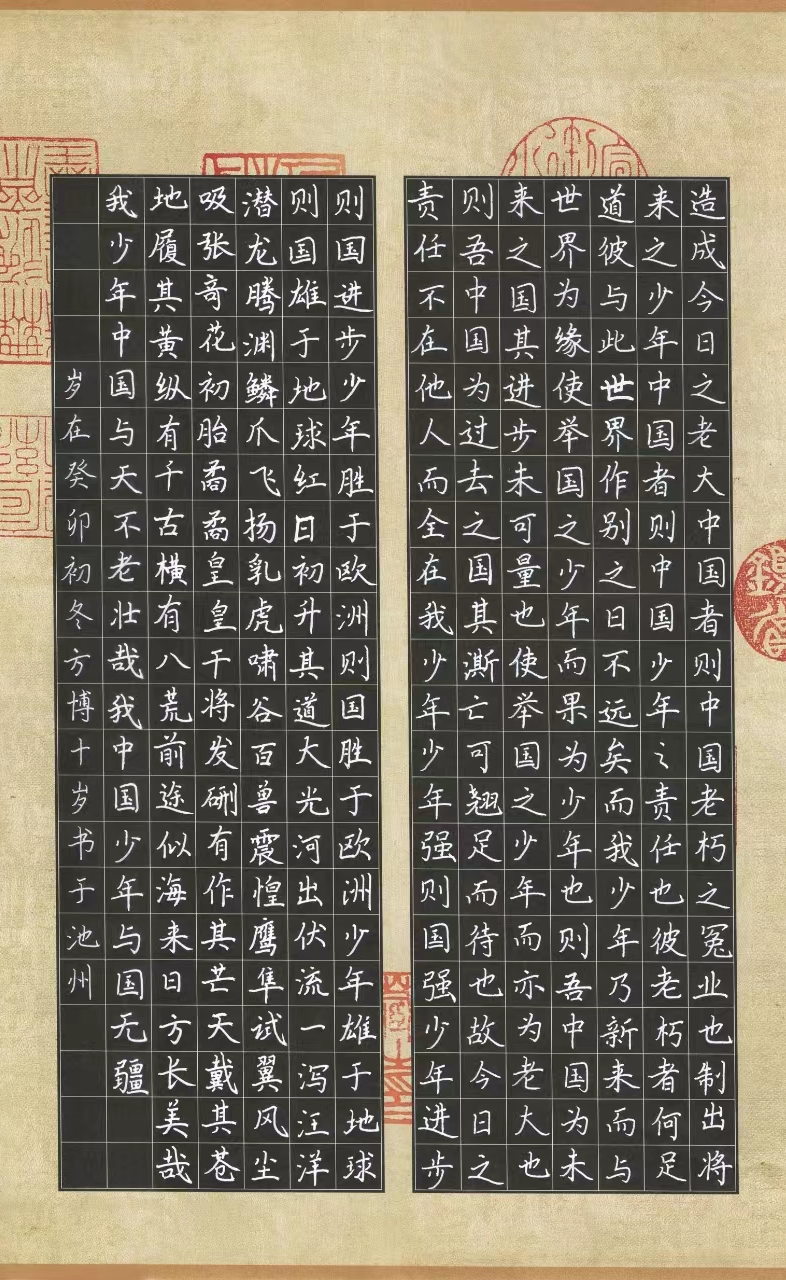 造成今日之老大中国者则中国老朽之冤业也制出将
来之少年中国者则中国少年之责任也彼老朽者何足
道彼与此世界作别之日不远矣而我少年乃新来而与
世界为缘使举国之少年而果为少年也则吾中国为未
来之国其进步未可量也使举国之少年而亦为老大也
则吾中国为过去之国其澌亡可翘足而待也故今日之
责任不在他人而全在我少年少年强则国强少年进步
则国进步少年胜于欧洲则国胜于欧洲少年雄于地球
则国雄于地球红日初升其道大光河出伏流一泻汪洋
潜龙腾渊鳞爪飞扬乳虎啸谷百兽震惶鹰隼试翼风尘
吸张奇花初胎矞矞皇皇干将发硎有作其芒天戴其苍
地履其黄纵有千古横有八荒前途似海来日方长美哉
我少年中国与天不老壮哉我中国少年与国无疆
岁在癸卯初冬方博十岁书于池州